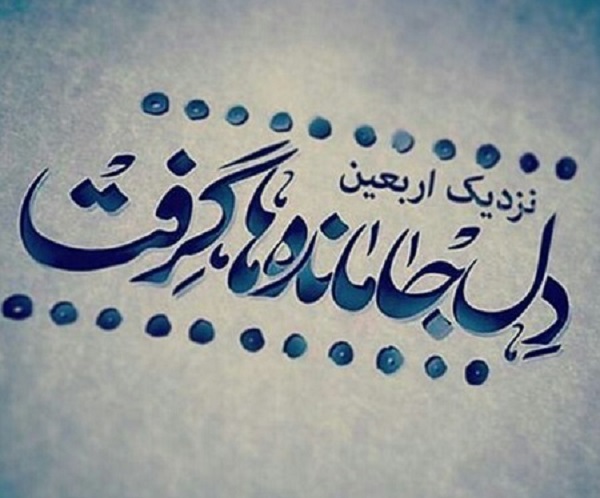 نزدیک اربعین
دل جامانده‌ها گرفت